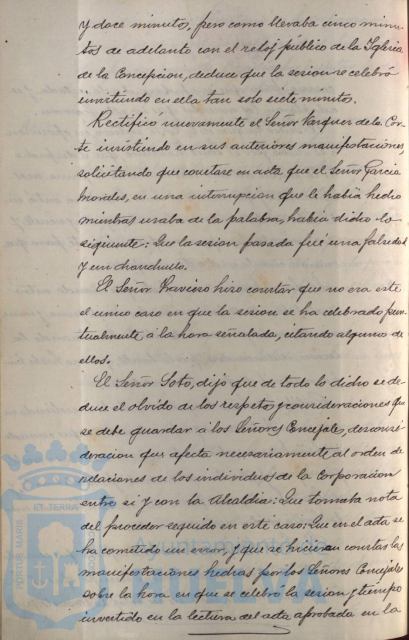 y doce minutos, pero como llevaba cinco minu-
tos de adelanto con el reloj público de la Iglesia
de la Concepcion, deduce que la sesion se celebró
invirtiendo en ella tan solo siete minutos.
Rectificó nuevamente el Señor Vazquez de la Cor-
te insistiendo en sus anteriores manifestaciones,
solicitando que constare en acta que el Señor Garcia
Morales, en una interrupcion que le habia hecho
mientras usaba de la palabra, habia dicho lo
siguiente: Que la sesion pasada fué una falsedad
y un chanchullo.
El Señor Travieso hizo constar que no era este
el unico caso en que la sesion se ha celebrado pun-
tualmente, á la hora señalada, citando alguno de
ellos.
El Señor Soto, dijo que de todo lo dicho se de-
duce el olvido de los respetos y consideraciones que
se debe guardar á los Señores Concejales, desconsi-
deracion que afecta necesariamente al orden de
relaciones de los individuos de la Corporacion
entre si y con la Alcaldia: Que tomaba nota
del proceder seguido en este caso: Que en el acta se
ha cometido un error, y que se hicieran constar las
manifestaciones hechas por los Señores Concejales
sobre la hora en que se celebró la sesion y tiempo
invertido en la lectura del acta aprobada en la
PORTUS MARIS ET TERRÆ
Ayuntamiento de